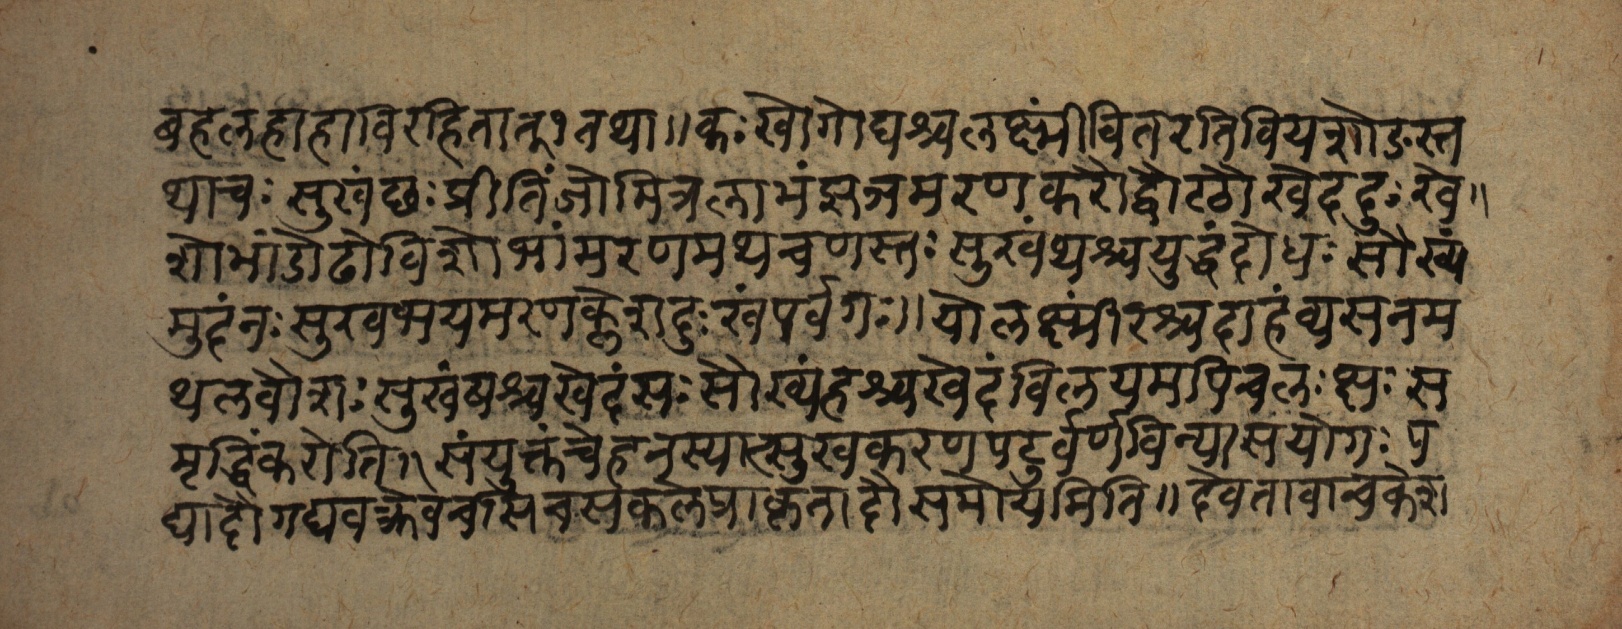 बहलहाहाविरहितान्१तथा॥कः खोगोघश्च लक्ष्मींवितरतिवियशोङस्त
थाचः सुखंछः प्रीतिंजोमित्रलाभंझञमरणकरौद्वौटठौखेददुःखे॥
शोभांडोढोविशोभांमरणमथचणस्तः सुखंथश्चयुद्धंदोधः सौख्यं
मुदंनः सुखभयमरणक्लेशदुःखंपवर्गः॥ योलक्ष्मींरश्चदाहंव्यसनम
थलवौशः सुखंषश्चखेदंसः सौख्यंहश्चखेदंविलयमपिचलः क्षः स
मृद्धिंकरोति॥ संयुक्तंचेहनस्यात्सुखकरणपटुर्वर्णविन्यासयोगः प
द्यादौगद्यवक्त्रेवचसिचसकलेप्राकृतादौसमोयमिति॥ देवतावाचकश